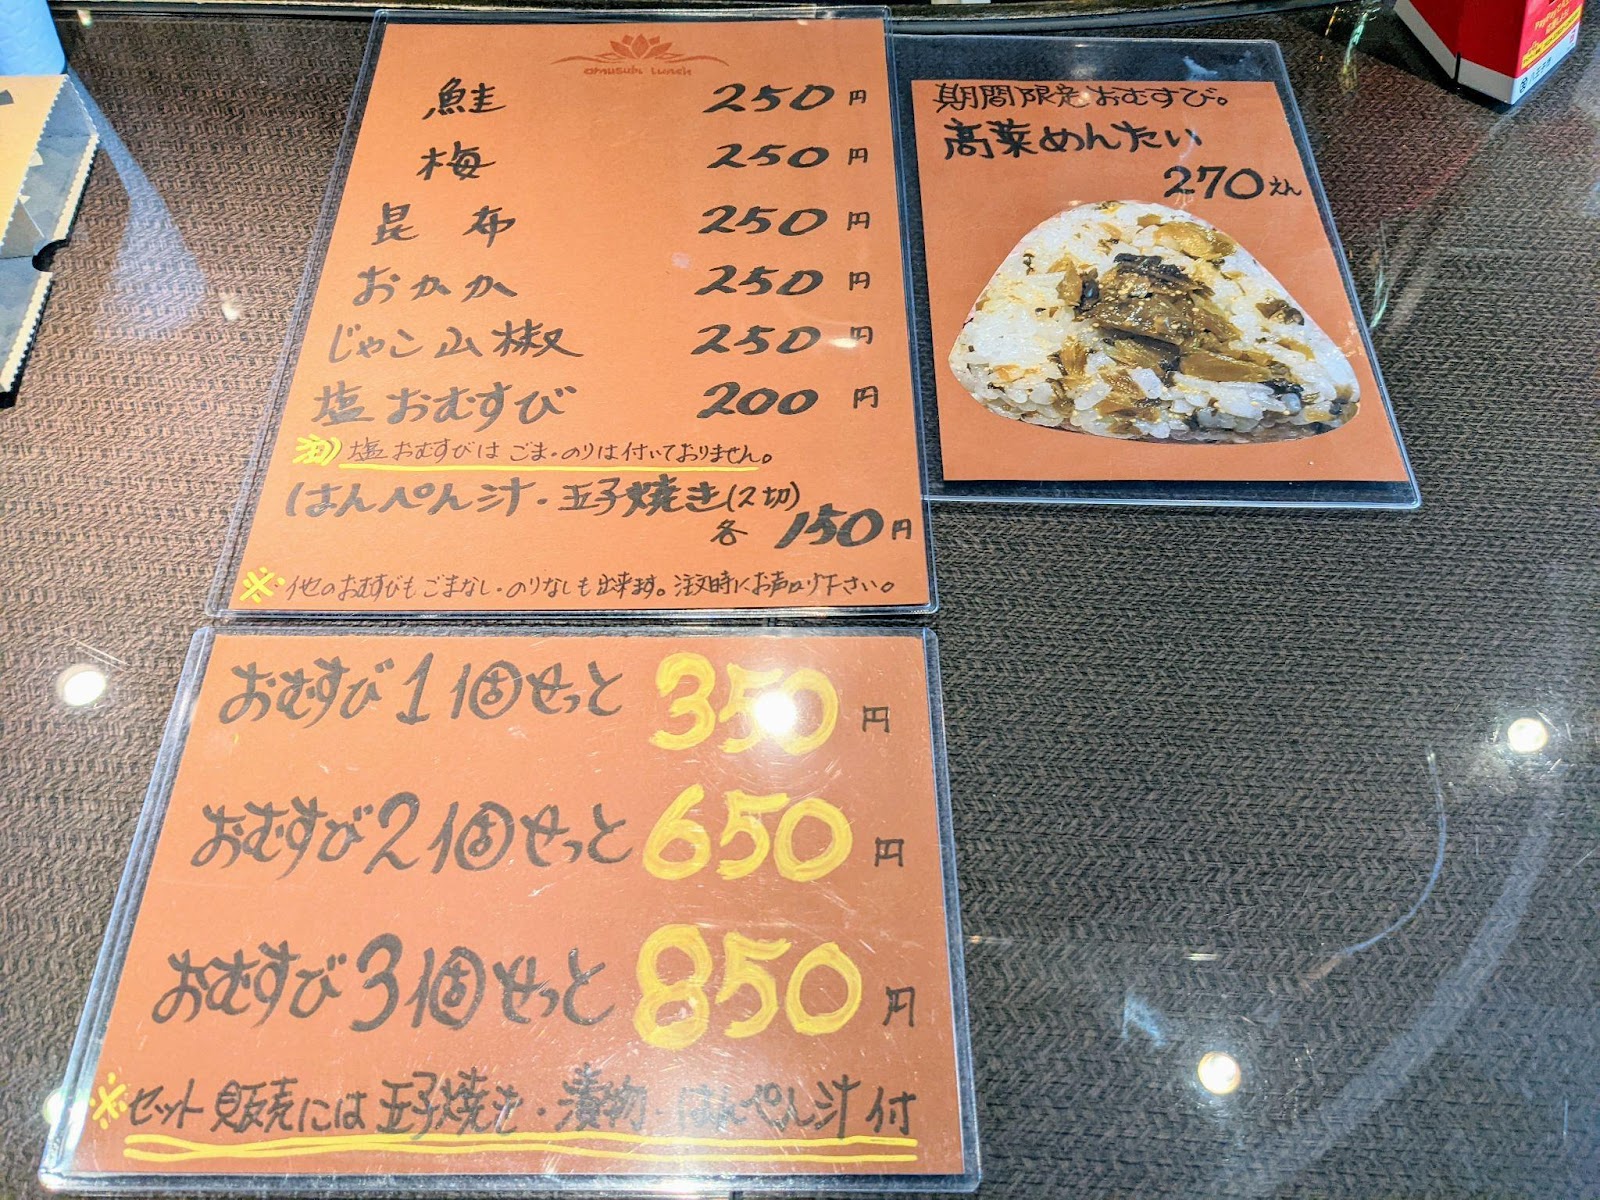 omusubi lunch
鮭 250円
梅 250円
昆布 250円
おかか 250円
じゃこ山椒 250円
塩おむすび 200円
注) 塩おむすびはごま・のりは付いておりません。
はんぺん汁・玉子焼き(2切)
各 150円
※他のおむすびもごまなし・のりなしも出来ます。注文時にお声かけ下さい。
期間限定おむすび。
高菜めんたい
270えん
おむすび1個せっと 350円
おむすび2個せっと 650円
おむすび3個せっと 850円
※セット販売には玉子焼き・漬物・はんぺん汁付